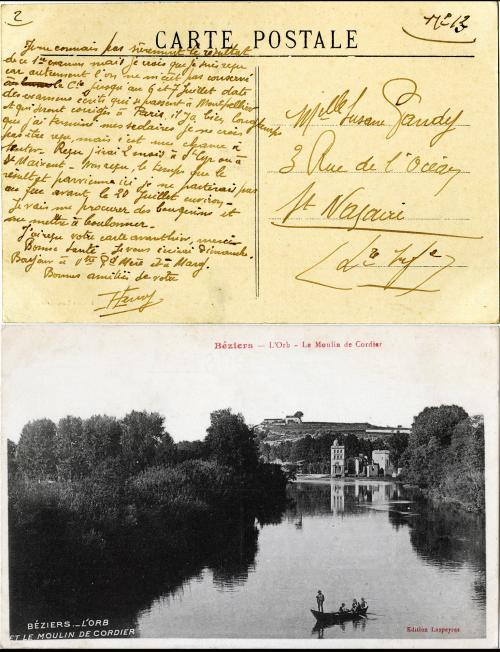 2
N° 13
CARTE POSTALE
Je ne connais pas sûrement le résultat
de ce 1er examen mais je crois que je suis reçu
car autrement l'on ne m'eut pas conservé
à la Cie jusqu'au 6 et 7 Juillet date
des examens écrits qui se passent à Montpellier
et qui seront corrigés à Paris, il y a bien longtemps
que j'ai terminé mes
pas être reçu mais c'est une chance à
tenter. Reçu j'irai ensuite à St Cyr ou à
St Maixent. Non reçu, le temps que le
résultat parvienne ici je ne partirais pas
au feu avant le 20 Juillet environ.
Je vais me procurer des bouquins et
me mettre à boulonner.
J'ai reçu votre carte avant hier, merci
Bonne santé. Je vous écrirai Dimanche.
Bonjour à
Bonnes amitiés de votre
Henry
Mlle Susane Gandy
3 Rue de l'Océan
St Nazaire
(Lre Infre)
Béziers — L'Orb - Le Moulin de Cordier
BÉZIERS _ L'ORB
ET LE MOULIN DE CORDIER
Edition Lapeyrot